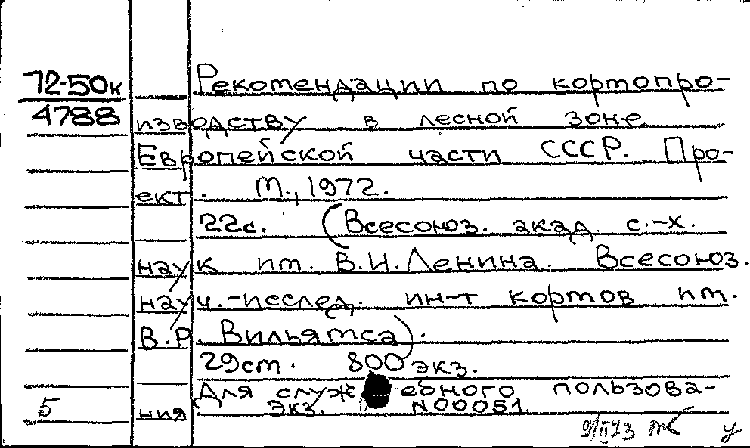 72-50к
4788
Рекомендации по кортопро-
изводству в лесной зоне
Европейской части СССР. Про-
ект. М., 1972.
22с. (Всесоюз. акад с.-х.
наук им. В.И.Ленина. Всесоюз.
науч.-исслед. ин-т кортов им.
В.Р. Вильямса).
29см. 800 экз.
Для служебного пользова-
ния экз. N00051
5
9/II 73